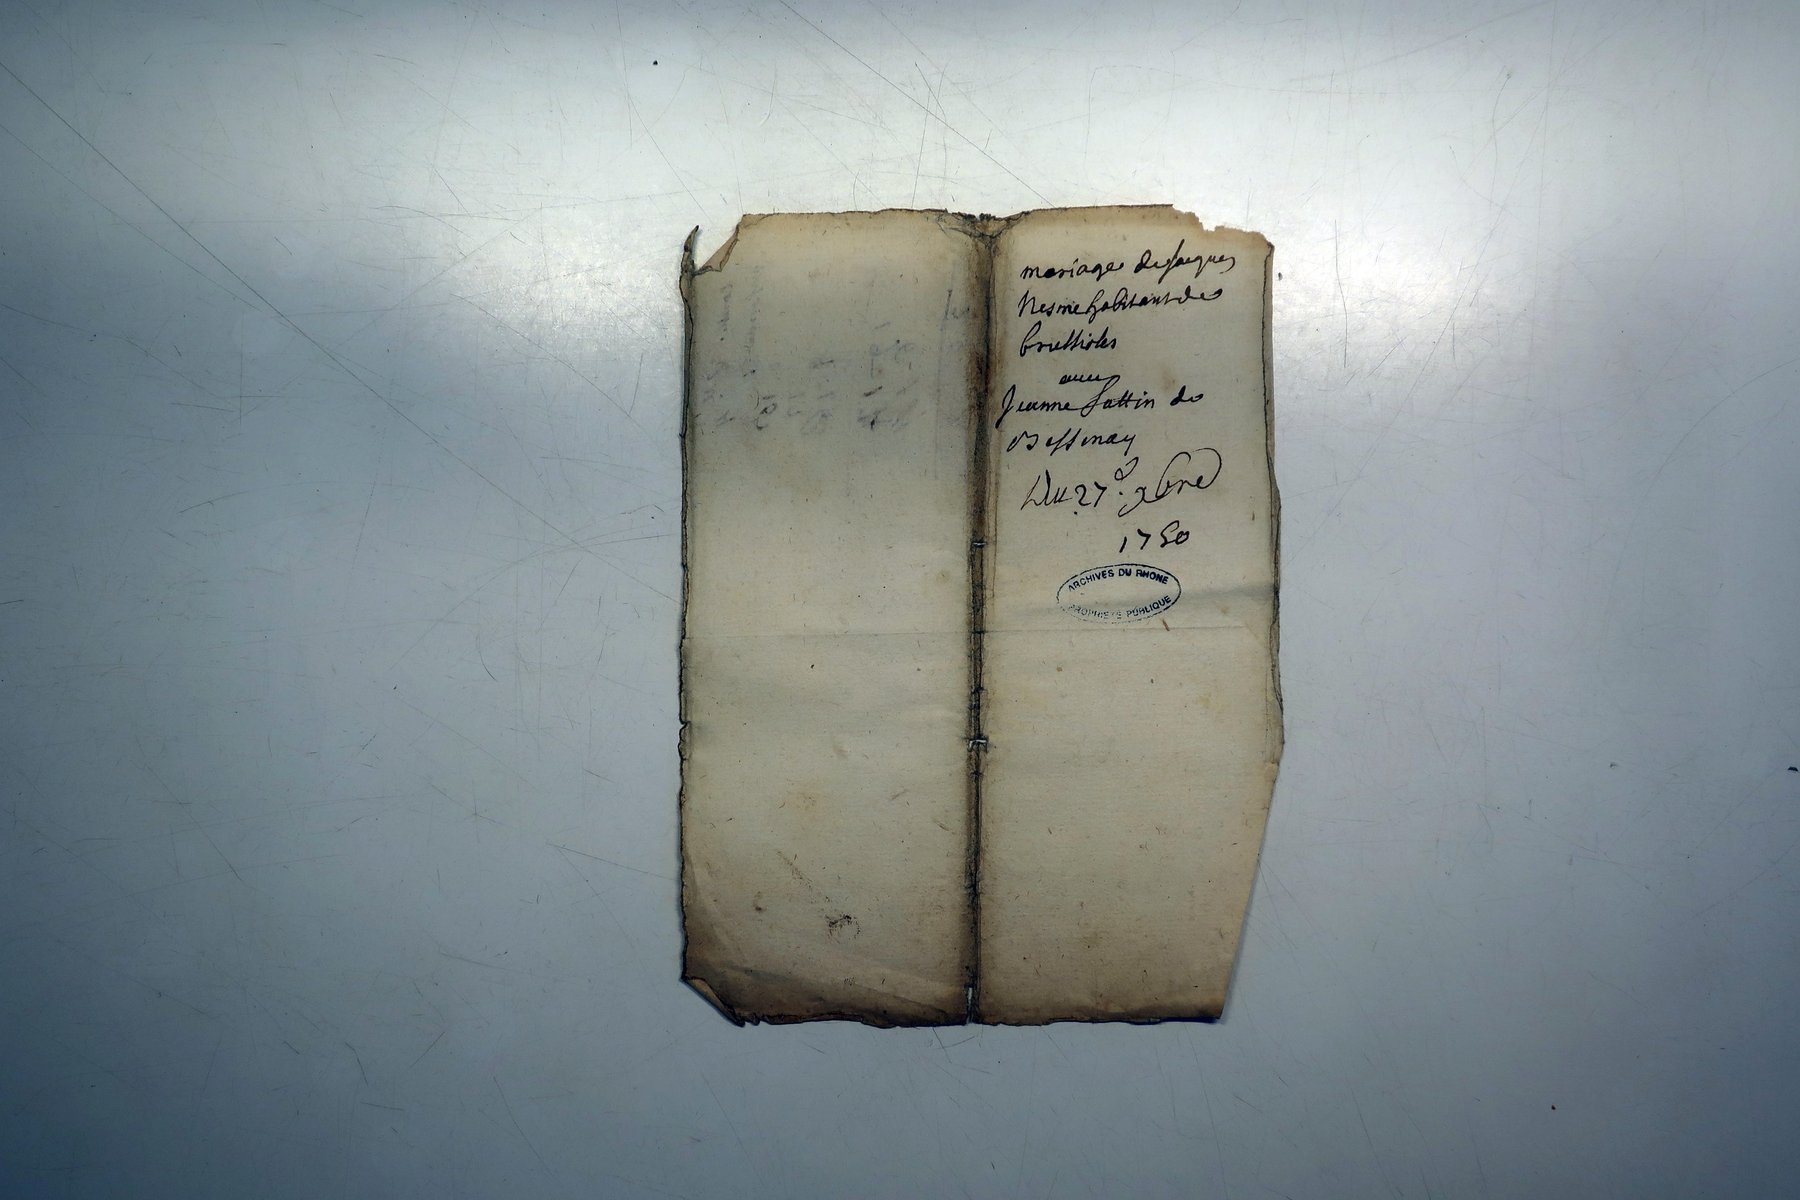 mariage de Jacques
Nesme habitant de
brussioles
avec
Jeanne Lattin de
Bessenay
Du 27e. xbre
1750
ARCHIVES DU RHONE
PROPRIETE PUBLIQUE